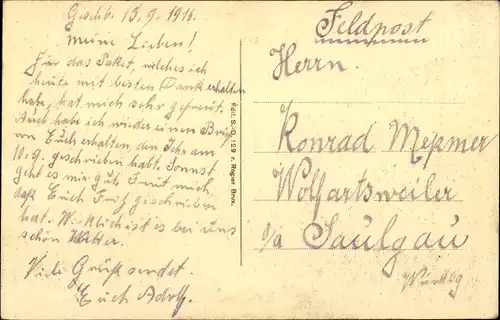 Geschb. 13.9.1916.
Meine Lieben!
Für das Paket, welches ich
heute mit besten Dank erhalten
habe, hat mich sehr gefreut.
Auch habe ich wieder einen Brief
von Euch erhalten, den Ihr am
10.9. geschrieben habt. Sonnst
geht es mir gut. Freut mich,
daß Euch geschrieben
hat. Wirklich ist es bei uns
schön Wetter.
Viele Grüße sendet
Euch Adolf.
Edit. S.-D. 129 r. Rogier Brux.
Feldpost
Herrn
Konrad Meßmer
Wolfartsweiler
o/a Saulgau
Württbg